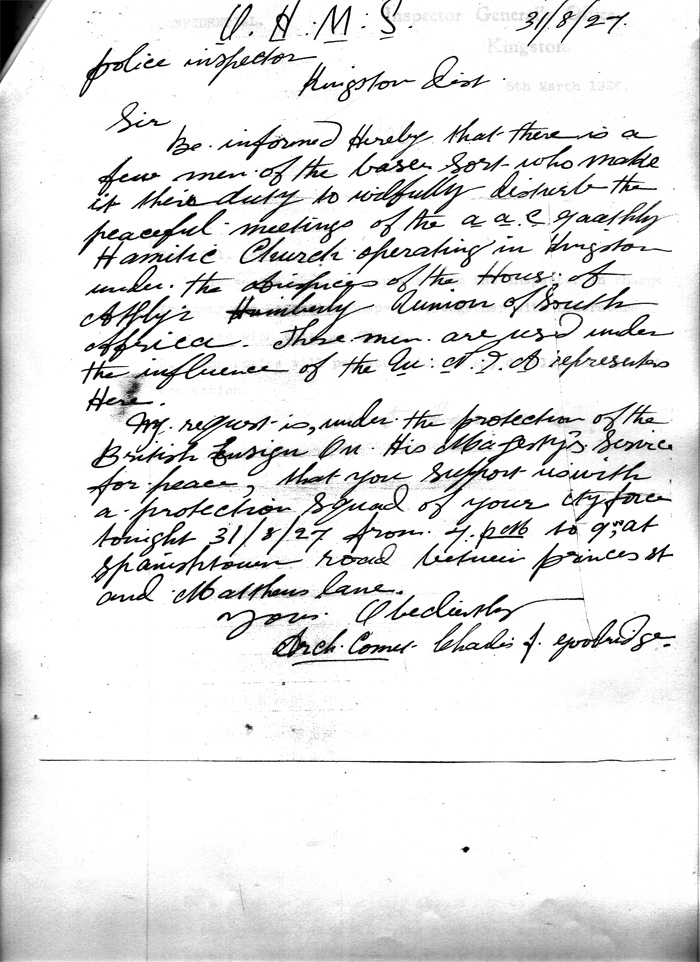 O. H. M. S. 31/8/27.
police inspector
Kingston Dist.
Sir
Be. informed Hereby that there is a
few men of the baser sort who make
it their duty to wilfully disturb the
peaceful meetings of the a a. c gaathly
Hamitic Church operating in Kingston
under the auspices of the House of
Athlyi Aunion of South
Africa. These men are used under
the influence of the U: N. I. A
Here.
My request is, under the protection of the
British Ensign On His Magesty's Service
for peace, that you support us with
a protection squad of your city force
tonight 31/8/27 from 7. pm to 9, at
Spanishtown road between princes st
and Matthews lane.
Yours. Obediently
Arch. Comer Charles f. goodridge.
CONFIDENTIAL. Inspector General's Office
Kingston
5th March 1925.